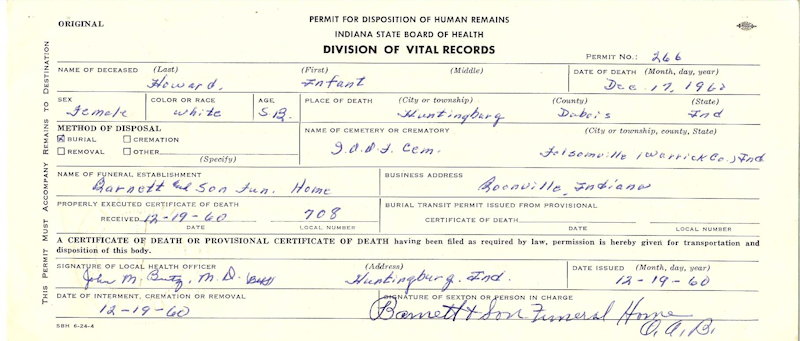 ORIGINAL
PERMIT FOR DISPOSITION OF HUMAN REMAINS
INDIANA STATE BOARD OF HEALTH
DIVISION OF VITAL RECORDS
PERMIT NO.: 266
THIS PERMIT MUST ACCOMPANY REMAINS TO DESTINATION
NAME OF DECEASED (Last) (First) (Middle) DATE OF DEATH (Month, day, year)
Howard, Infant Dec. 17, 1960
SEX COLOR OR RACE AGE PLACE OF DEATH (City or township) (County) (State)
Female White S B. Huntingburg Dubois Ind
METHOD OF DISPOSAL NAME OF CEMETERY OR CREMATORY (City or township, county, State)
BURIAL CREMATION
REMOVAL OTHER I.O.O.F. Cem. Folsomville (Warrick Co.) Ind
(Specify)
NAME OF FUNERAL ESTABLISHMENT BUSINESS ADDRESS
Barnett and Son Fun. Home Boonville, Indiana
PROPERLY EXECUTED CERTIFICATE OF DEATH BURIAL TRANSIT PERMIT ISSUED FROM PROVISIONAL
RECEIVED 12-19-60 708 CERTIFICATE OF DEATH
DATE LOCAL NUMBER DATE LOCAL NUMBER
A CERTIFICATE OF DEATH OR PROVISIONAL CERTIFICATE OF DEATH having been filed as required by law, permission is hereby given for transportation and
disposition of this body.
SIGNATURE OF LOCAL HEALTH OFFICER (Address) DATE ISSUED (Month, day, year)
John M. Butz, M.D. Huntingburg, Ind. 12-19-60
DATE OF INTERMENT, CREMATION OR REMOVAL SIGNATURE OF SEXTON OR PERSON IN CHARGE
12-19-60 Barnett & Son Funeral Home
O.A.B.
SBH 6-24-4